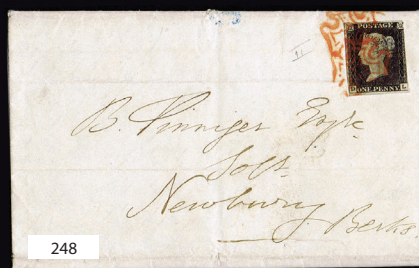 POSTAGE
ONE PENNY
B. Pinniger Esqre
Solr
Newbury
Berks.
248